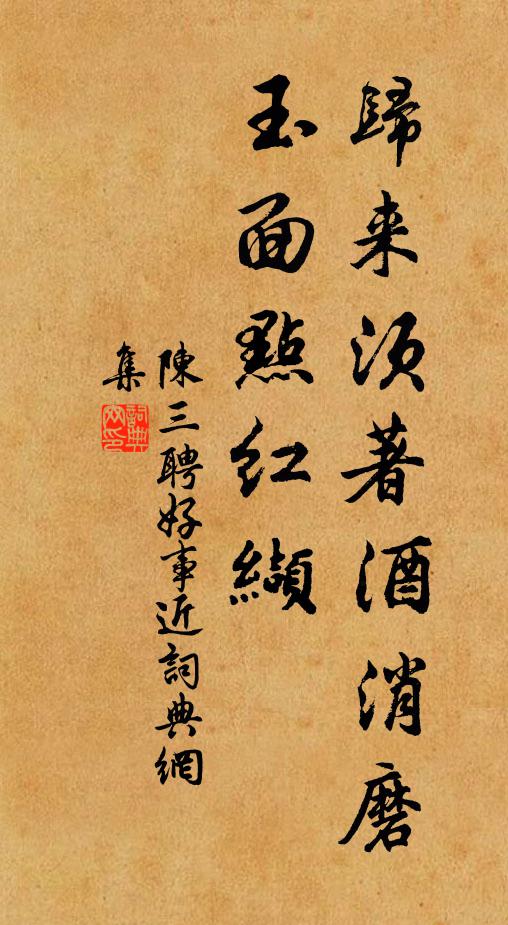 歸来須著酒消磨
玉面點紅纈
陳三聘好事近詞典網
集
詞典網印